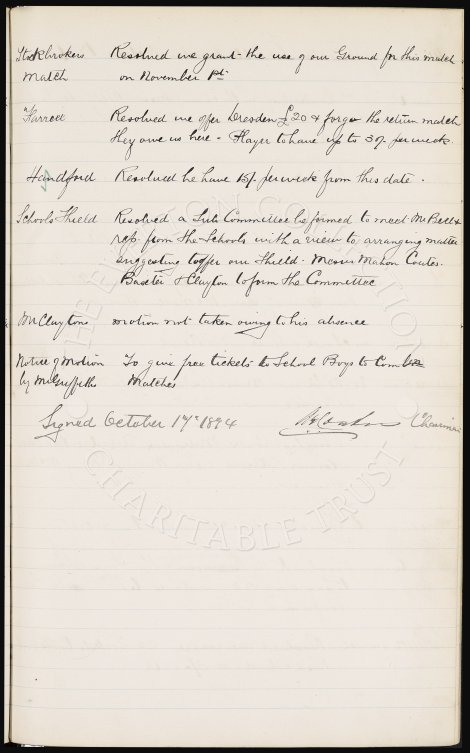 Stockbrokers Resolved we grant the use of our Ground for this match
Match on November 1st
Farrell Resolved we offer Dresden £20 & forego the return match
they owe us here - Player to have up to 30/. per week
Handford Resolved he have 15/. per week from this date.
Schools Shield Resolved a Sub Committee be formed to meet Mr Bell &
rep. from the Schools with a view to arranging matter
suggesting to offer our Shield. Messrs Mahon Coates.
Baxter & Clayton to form the Committee
Mr Claytons motion not taken owing to his absence
Notice of Motion To give free tickets to School Boys to Comb
by Mr Griffiths Matches
Signed October 17th 1894 Chairman
THE EVERTON COLLECTION
CHARITABLE TRUST